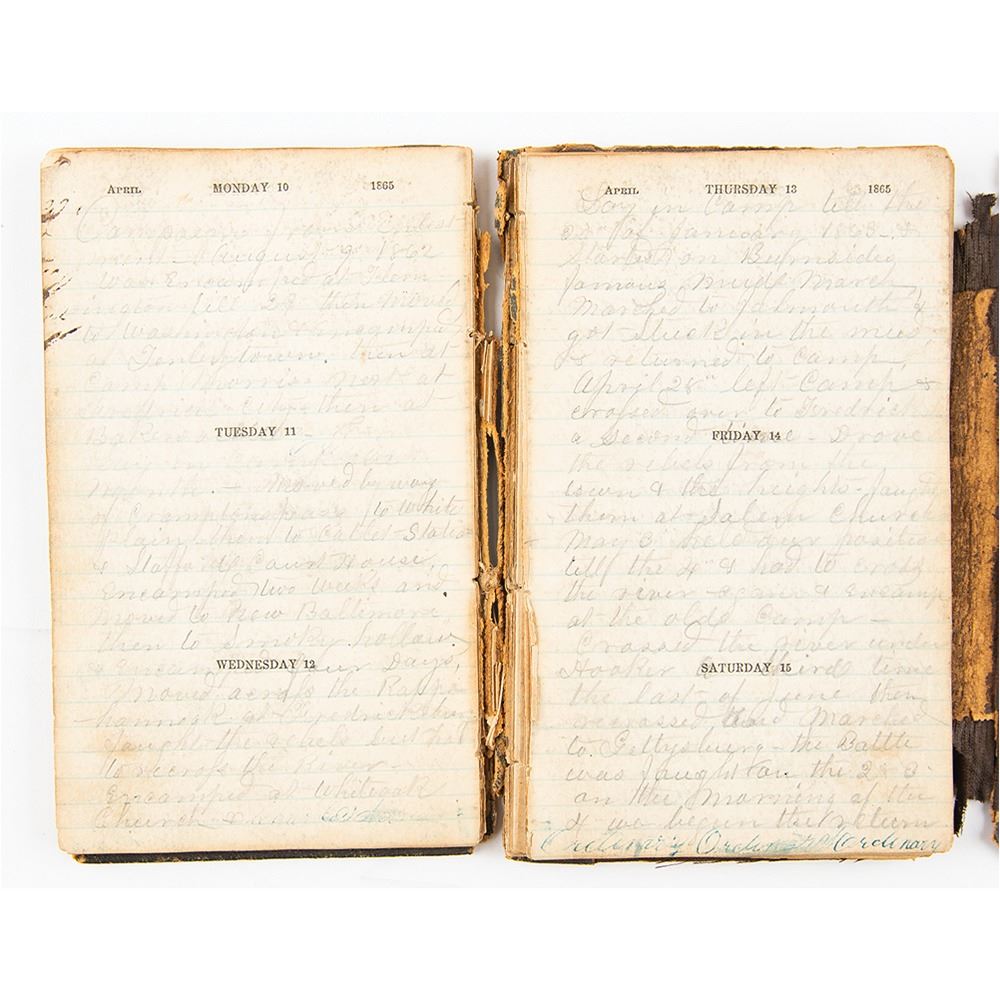 APRIL MONDAY 10 1865
Campaign from Enlist
ment - August 9 1862
was Encamped at Flem
ington till 23 then moved
to Washington & encamped
at Tenleytown. then at
Camp Morris next at
City then at
Bakers
TUESDAY 11
Day in camp
Month - moved by way
of Cramptons pass to White
plains then to Catlet Statio
& Staffords Court House,
Encamped two weeks and
moved to New Baltimore
then to Smoky hollow
WEDNESDAY 12
& Encamped four Days,
moved across the Rappa
hannock at Fredricksburg
faught the rebels but had
to recross the River -
Encamped at Whiteoak
Church
APRIL THURSDAY 13 1865
Lay in Camp till the
of January 1863 &
Started on Burnsides
famous Mudd March
Marched to Falmouth &
got Stuck in the mud
& returned to camp,
April 28" left Camp &
crossed over to Fredrick
FRIDAY 14
a Second time - Drove
the rebels from the
town & the heights - faught
them at Salem Church
May 3 held our position
till the 4" & had to cross
the river again & Encamp
at the old Camp -
Crossed the river under
SATURDAY 15
Hooker a third time
the last of June then
recrossed and Marched
to Gettysburg - the Battle
was faught on the 2 & 3
on the Morning of the
4 we begun the return
Ordinary Ordinary Ordinary